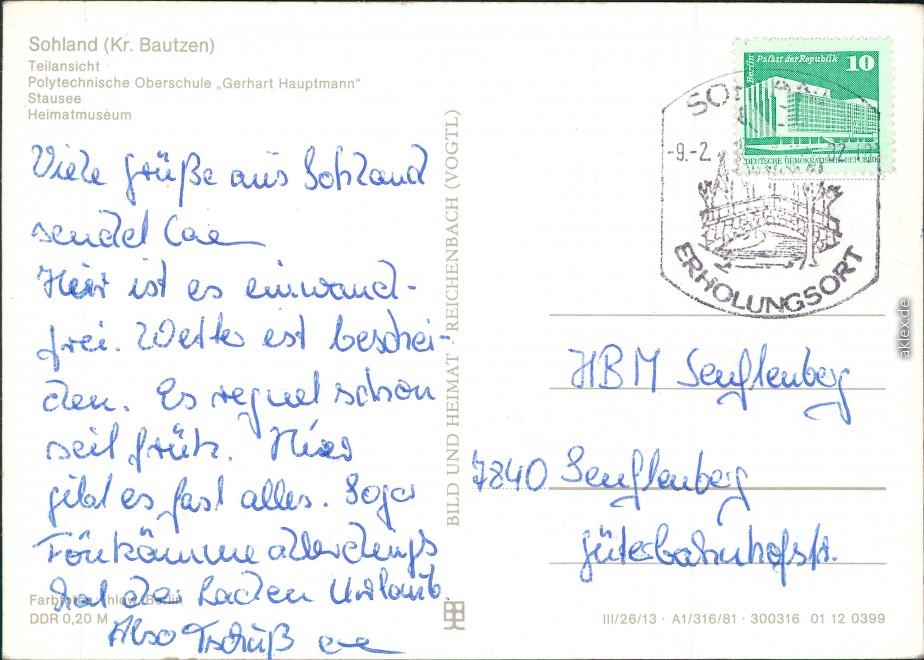 Sohland (Kr. Bautzen)
Teilansicht
Polytechnische Oberschule „Gerhart Hauptmann“
Stausee
Heimatmuseum
Viele Grüße aus Sohland
sendet
Hier ist es einwand-
frei. Wetter ist beschei-
den. Es regnet schon
seit früh. Hier
gibt es fast alles. Sogar
Fönkämme allerdings
hat der Laden Urlaub.
Also Tschüß
Farbfotos: Berlin
DDR 0,20 M
BILD UND HEIMAT REICHENBACH (VOGTL)
Berlin Palast der Republik 10
DEUTSCHE DEMOKRATISCHE REPUBLIK
SOH
-9.-2.
ERHOLUNGSORT
HBM Senftenberg
7840 Senftenberg
Güterbahnhofstr.
III/26/13 · A1/316/81 · 300316 01 12 0399
aklex.de